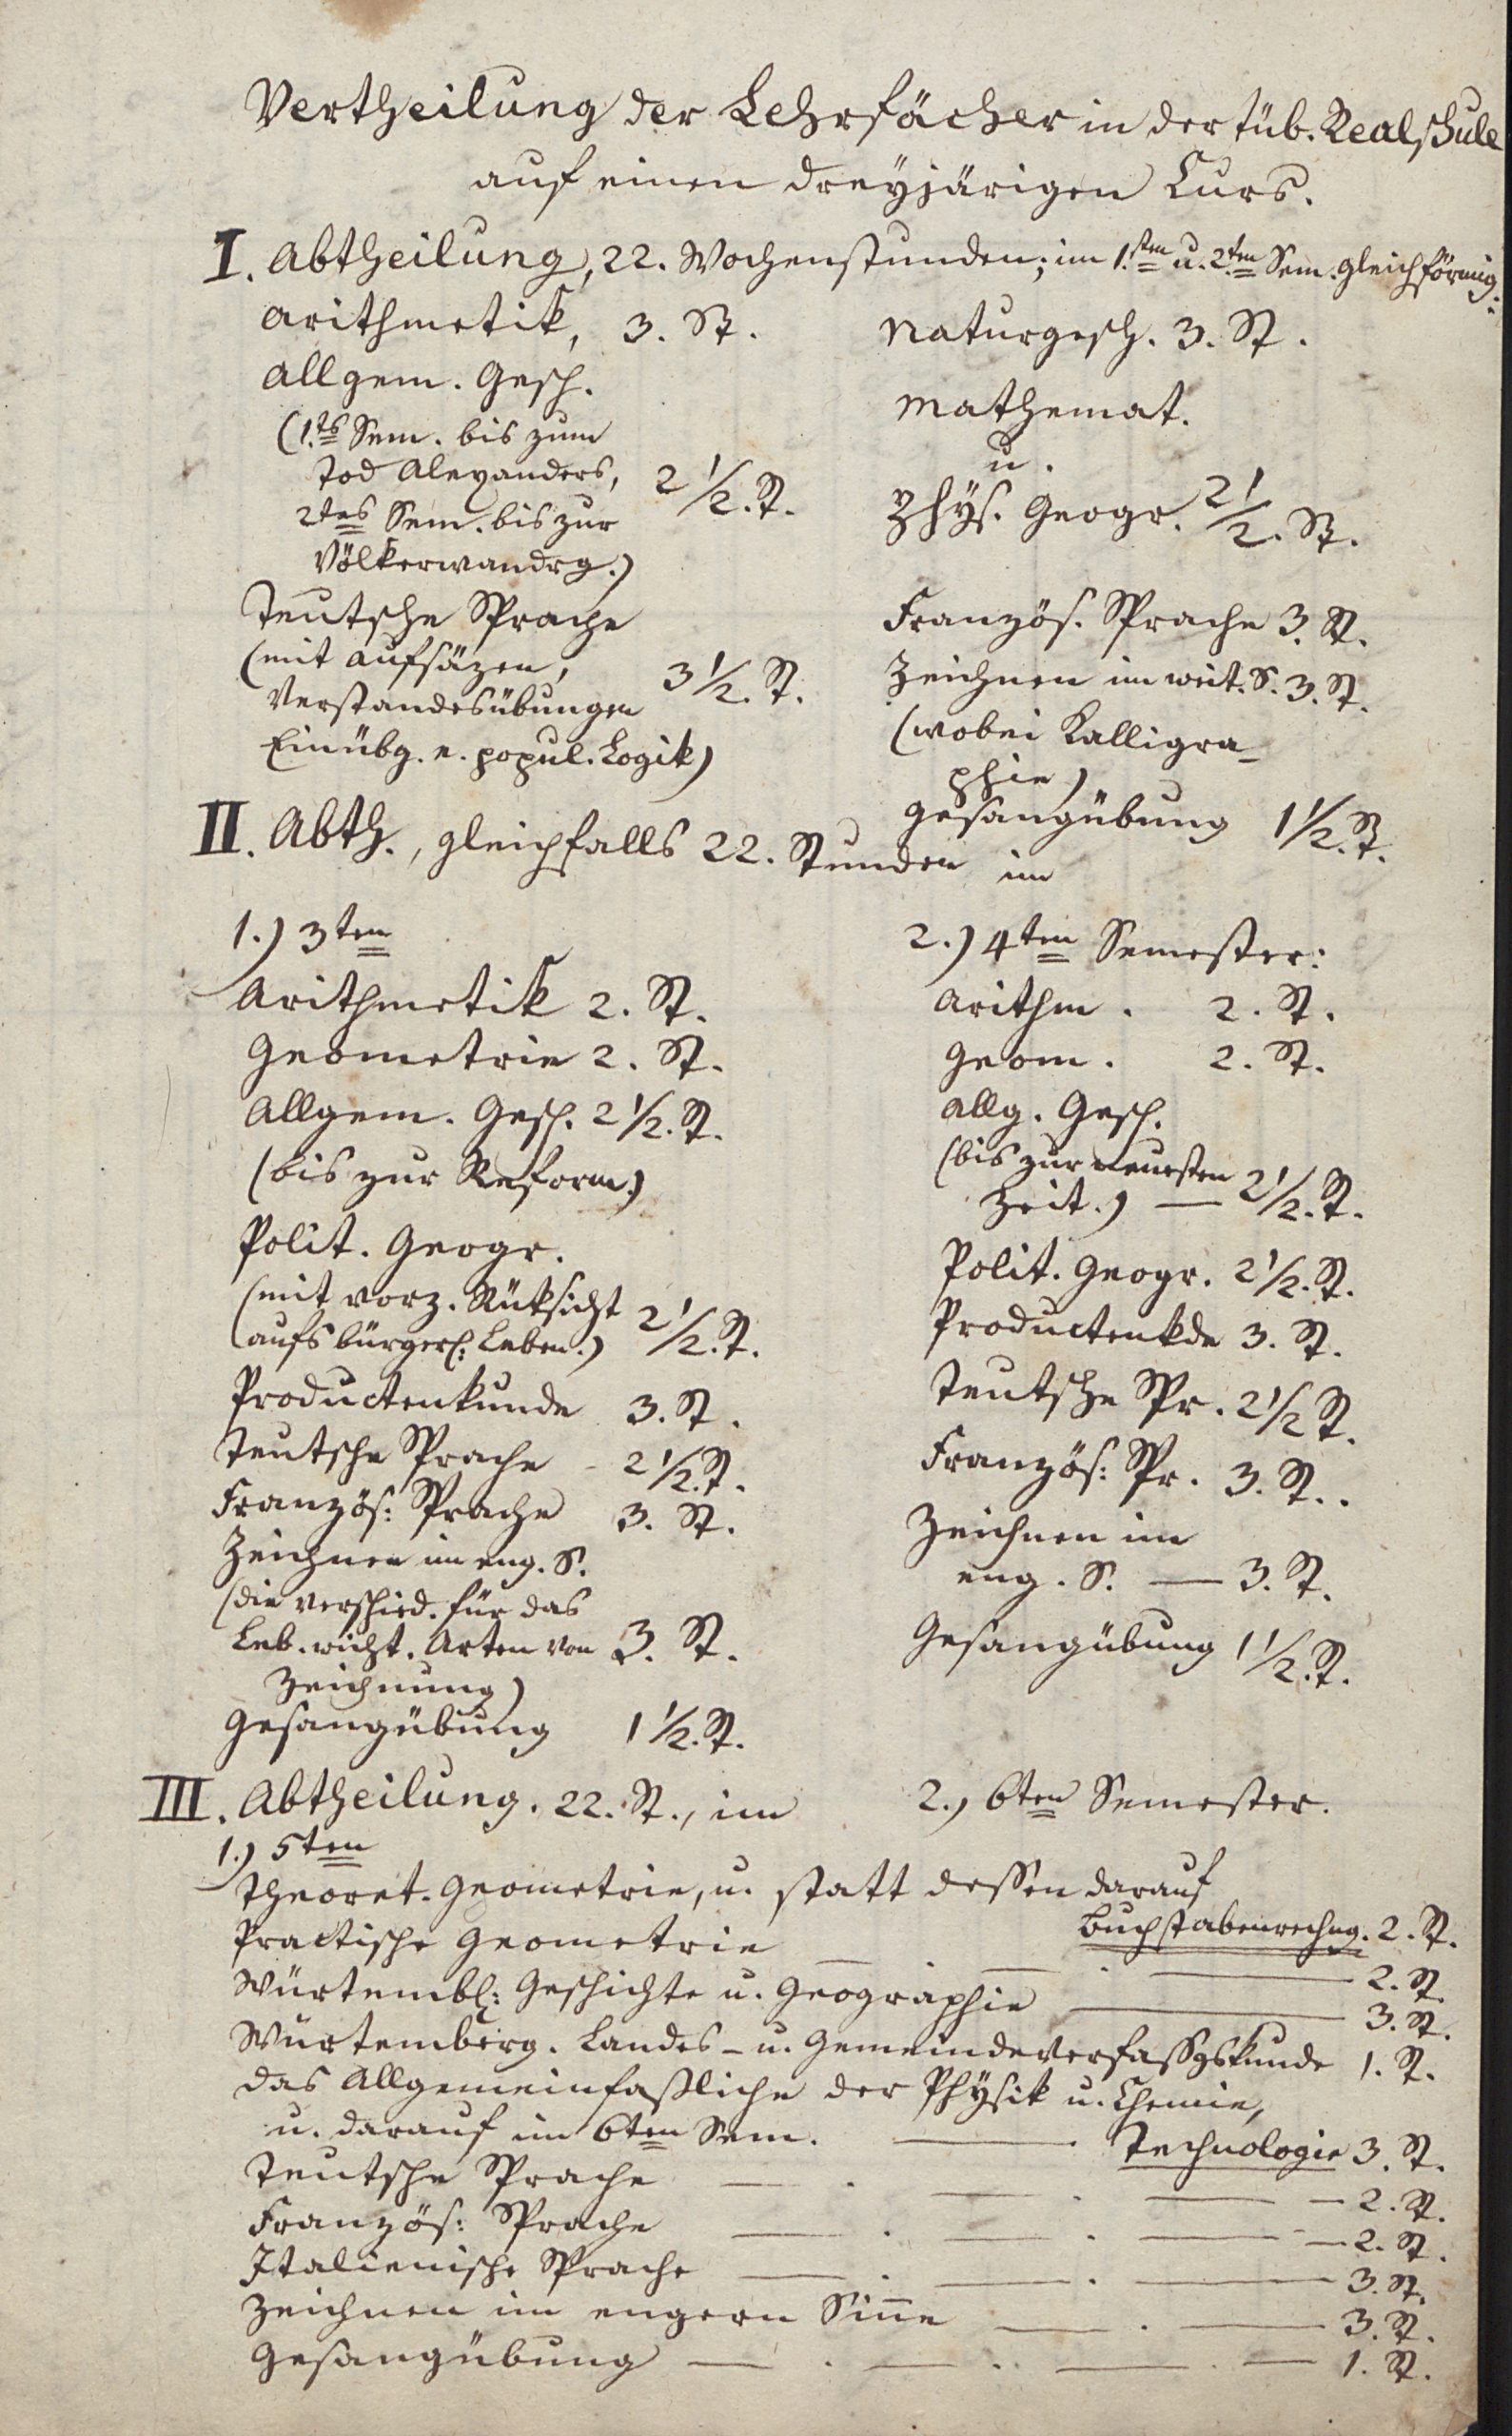 Vertheilung der Lehrfächer in der tüb. Realschule
auf einen dreyjärigen Curs.
I. Abtheilung, 22. Wochenstunden; im 1.sten u. 2.ten Sem. gleichförmig:
Arithmetik, 3. St.
Allgem. Gesch.
(1.tes Sem. bis zum
Tod Alexanders,
2tes Sem. bis zur 2 1/2. St.
Völkerwandrg.)
Teutsche Sprache
(mit Aufsäzen,
Verstandesübungen 3 1/2. St.
Einübg. e. popul. Logik)
Naturgesch. 3. St.
Mathemat.
u.
Phys. Geogr. 2 1/2. St.
Französ. Sprache 3. St.
Zeichnen im weit. S. 3. St.
(wobei Kalligra-
phie)
Gesangübung 1 1/2. St.
II. Abth., gleichfalls 22. Stunden im
1.) 3ten
Arithmetik 2. St.
Geometrie 2. St.
Allgem. Gesch. 2 1/2. St.
(bis zur Reform.)
Polit. Geogr.
(mit vorz. Rüksicht
aufs bürgerl: Leben.) 2 1/2. St.
Productenkunde 3. St.
Teutsche Sprache - 2 1/2. St.
Französ: Sprache 3. St.
Zeichnen im eng. S.
(die verschied. für das
Leb. wicht. Arten von 3. St.
Zeichnung)
Gesangübung 1 1/2. St.
2.) 4ten Semester:
Arithm. 2. St.
Geom. 2. St.
Allg. Gesch.
(bis zur neuesten
Zeit.) — 2 1/2. St.
Polit. Geogr. 2 1/2. St.
Productenkde 3. St.
Teutsche Spr. 2 1/2 St.
Französ: Spr. 3. St..
Zeichnen im
eng. S. — 3. St.
Gesangübung 1 1/2. St.
III. Abtheilung. 22. St., im
1.) 5ten
2.) 6ten Semester.
Theoret. Geometrie, u. statt dessen darauf
Buchstabenrechng. 2. St.
Practische Geometrie — — . — 2. St.
Würtembl: Geschichte u. Geographie — 3. St.
Würtemberg. Landes- u. Gemeindeverfassgskunde 1. St.
Das Allgemeinfaßliche der Physik u. Chemie,
u. darauf im 6ten Sem. — . Technologie 3. St.
Teutsche Sprache — . — . — — 2. St.
Französ: Sprache — . — . — — 2. St.
Italienische Sprache — . — . — 3. St.
Zeichnen im engern Sinne — . — 3. St.
Gesangübung — . — .. — . — 1. St.